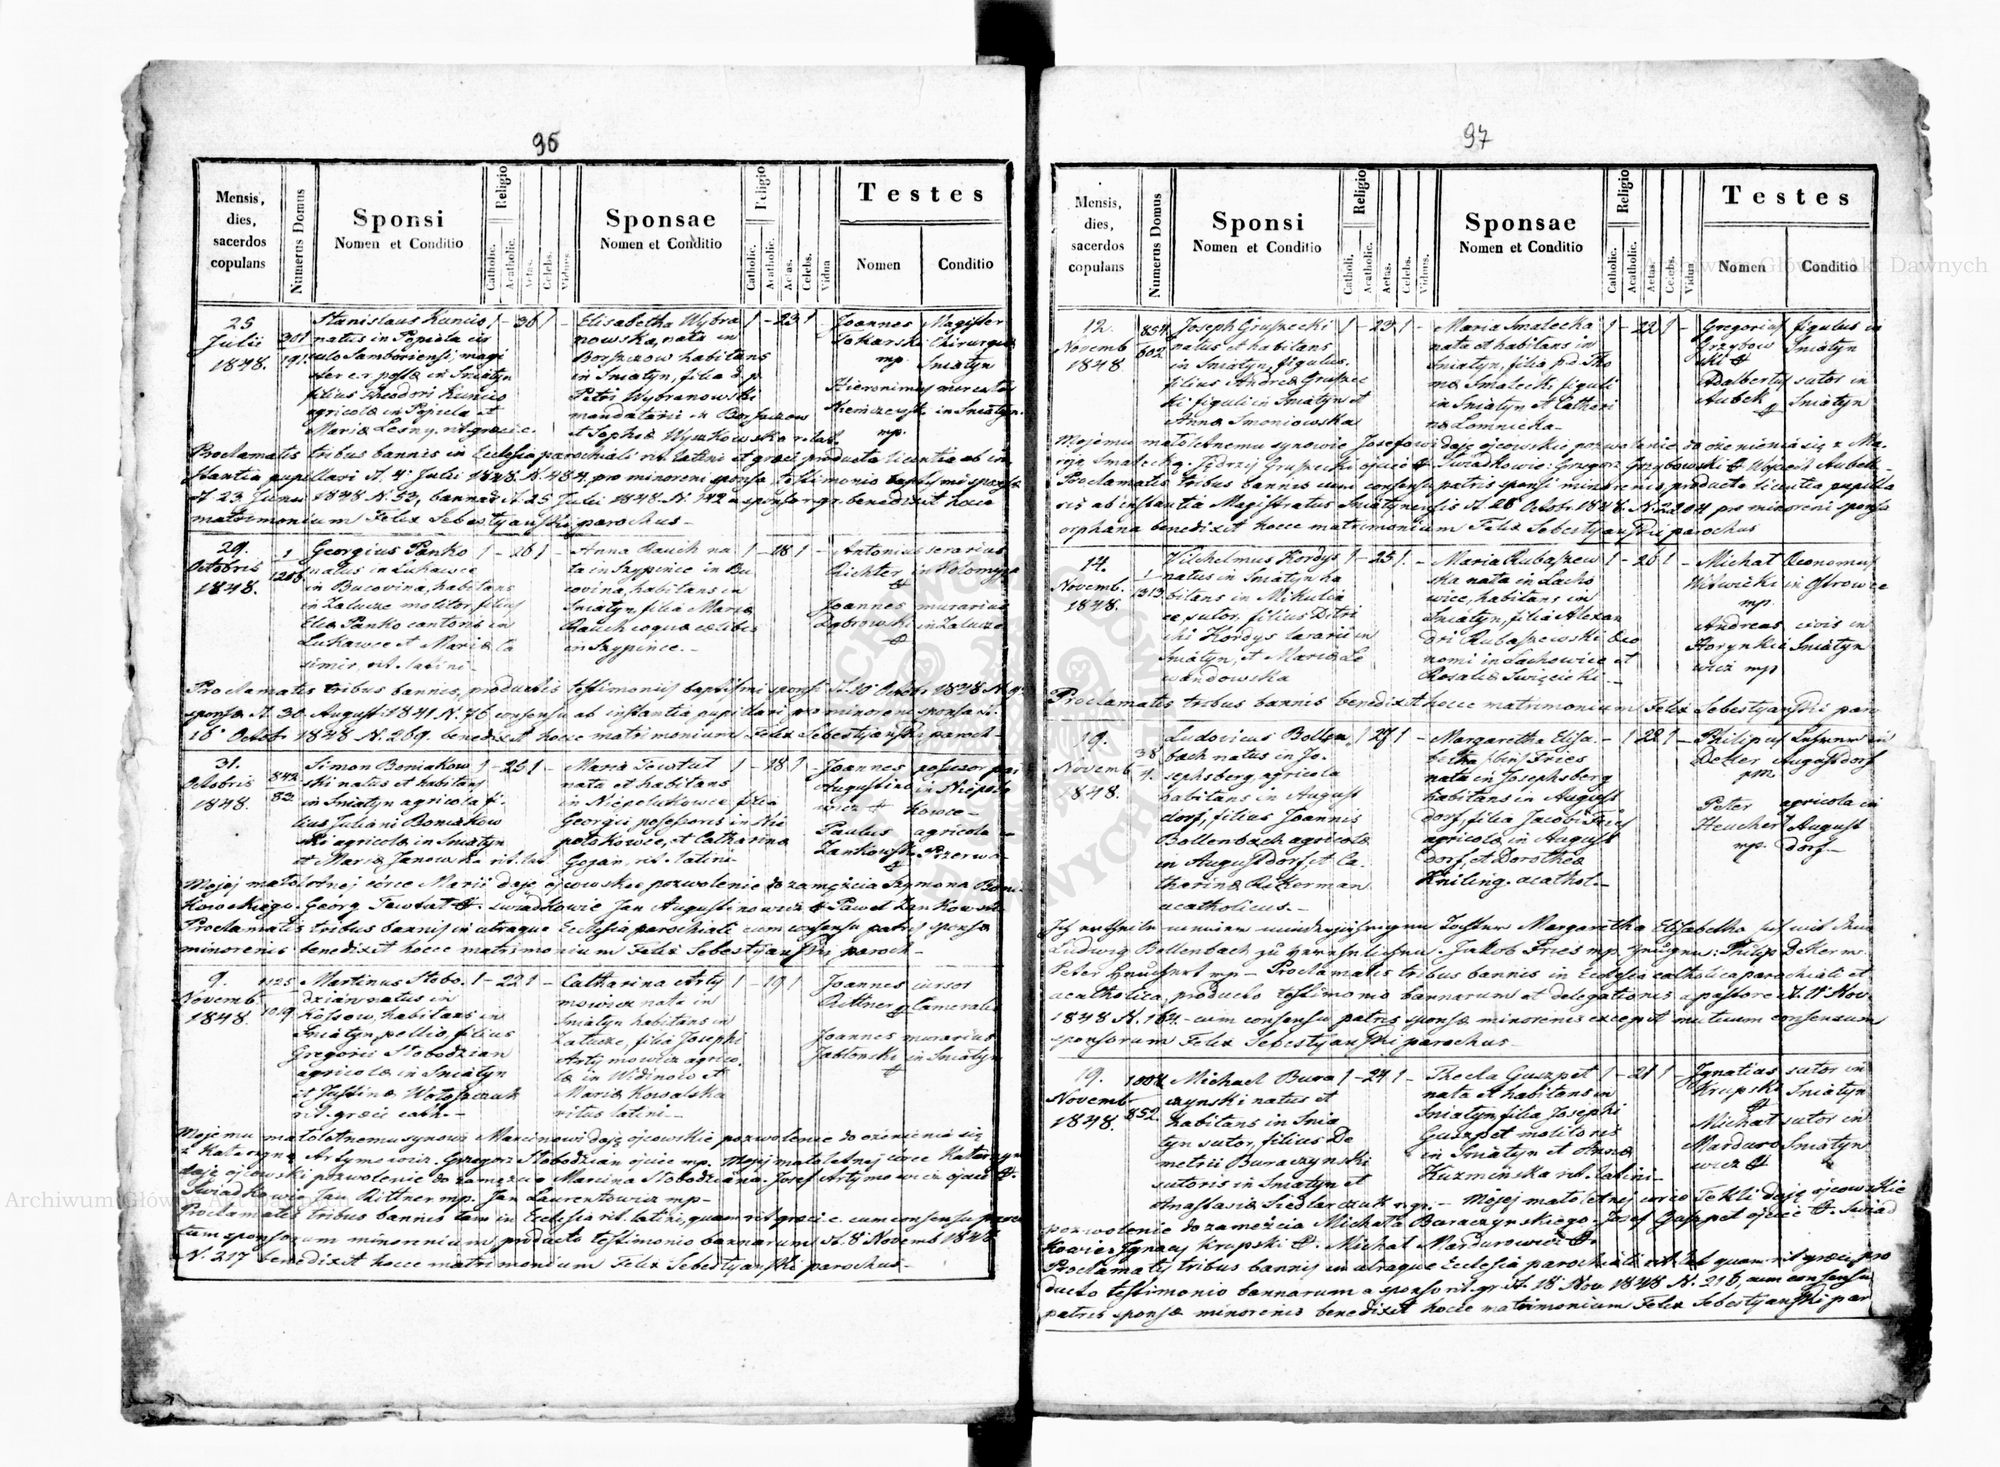 96
Mensis, dies, sacerdos copulans
Numerus Domus
Sponsi
Nomen et Conditio
Religio
Catholic.
Acatholic.
Aetas.
Celebs.
Viduus
Sponsae
Nomen et Conditio
Religio
Catholic.
Acatholic.
Aetas.
Celebs.
Vidua
Testes
Nomen
Conditio
25 Julii 1848.
301
191.
Stanislaus Kuncio
natus in Popiela cir
culo Samboriensi magi
ster e.r. postæ in Sniatyn
filius Theodori Kuncio
agricolæ in Popiela et
Mariæ Lesny. rit. græci c.
1 - 36 1 -
Elisabetha Wybra
nowska, nata in
Borszczow habitans
in Sniatyn, filia d. p.
Petri Wybranowski
mandatarii in Borszczow
et Sophiæ Wyszkowska r. lat.
1 - 23 1 -
Joannes Tokarski mp.
Magister Chirurgiæ Sniatyn
Hieronimus Niemczewski mp.
mercator in Sniatyn.
Proclamatis tribus bannis in Ecclesia parochiali rit. latini et græci producta licentia ab in
stantia pupillari d. 4t Julii 1848. N. 484. pro minoreni sponsa, testimonio baptismi sponsæ
d. 23 Junii 1848 N. 53, bannar. d. 25 Julii 1848. N. 142 a sponso r. gr. benedixit hocce
matrimonium Felix Sebestyański parochus
29. Octobris 1848.
1
1208.
Georgius Panko
natus in Lukawce
in Bucovina, habitans
in Zalucze molitor, filius
Eliæ Panko cantoris in
Lukawce et Mariæ Ca
simir, rit. latini
1 - 26 1 -
Anna Rauch na
ta in Szypince in Bu
covina, habitans in
Sniatyn, filia Mariæ
Rauch coquæ cælibis
in Szypince.
1 - 18 1 -
Antonius Richter
serarius in Kolomyja
Joannes Dąbrowski
murarius in Zalucze
Proclamatis tribus bannis, productis testimoniis baptismi sponsi d. 10t Octobr 1848 N. 9.
sponsæ d. 30 August. 1841. N. 76 consensu ab instantia pupillari pro minoreni sponsa d.
16t Octobr 1848 N. 269. benedixit hocce matrimonium Felix Sebestyański paroch
31. Octobris 1848.
842.
83.
Simon Boniakow
ski natus et habitans
in Sniatyn agricola fi
lius Juliani Boniakow
ski agricolæ in Sniatyn
et Mariæ Janowska rit. lat.
1 - 25 1 -
Maria Towtut
nata et habitans
in Niepołukowce filia
Georgii possessoris in Nie
połokowce, et Catharinæ
Gojan, rit. latini
1 - 18 1 -
Joannes Augustino wicz
possesor par in Niepoło kowce
Paulus Zankowski
agricola
Mojej małoletnej córce Marii daję ojcowskie pozwolenie do zamęzcia Szymona Bonia
kowskiego. Georg Towtut. świadkowie Jan Augustinowicz Paweł Zankowski
Proclamatis tribus bannis in utraque Ecclesia parochiali cum consensu patris sponsæ
minorenis benedixit hocce matrimonium Felix Sebestyański paroch
9. Novemb. 1848.
1125
1019.
Martinus Stobo
dzian natus in
Kossow, habitans in
Sniatyn, pellio, filius
Gregorii Stobodzian
agricolæ in Sniatyn
et Justinæ Wołoszczuk
rit. græci cath.
1 - 22 1 -
Catharina Arty
mowicz nata in
Sniatyn habitans in
Zalucze, filia Josephi
Artymowicz agrico
læ in Widinow et
Mariæ Kowalska
ritus latini
1 - 19 1
Joannes Rittner
cursor Cameralis
Joannes Jabłonski
murarius in Sniatyn
Mojemu małoletnemu synowi Marcinowi daję ojcowskie pozwolenie do ożenienia się
z Katarzyną Artymowicz. Grzegorz Stobodzian ojciec mp. Mojej małoletnej córce Katarzyn
daję ojcowski pozwolenie do zamęzcia Marcina Stobodziana. Josef Artymowicz ojciec
Świadkowie Jan Rittner mp. Jan Laurentowicz mp
Proclamatis tribus bannis tam in Ecclesia rit. latini, quam rit græci c. cum consensu paren
tum sponsorum minorenium, producto testimonio bannarum d. 8t Novemb 1848.
N. 217 benedixit hocce matrimonium Felix Sebestyański parochus.
97
Mensis, dies, sacerdos copulans
Numerus Domus
Sponsi
Nomen et Conditio
Religio
Catholi.
Acatholic.
Aetas.
Celebs.
Viduus.
Sponsae
Nomen et Conditio
Religio
Catholic.
Acatholic.
Aetas
Celebs.
Vidua
Testes
Nomen
Conditio
12. Novemb 1848
854
602.
Joseph Gruszecki
natus et habitans
in Sniatyn, figulus.
filius Andreæ Gruszec
ki figuli in Sniatyn et
Annæ Smoniowska
1 - 23 1 -
Maria Smalecka
nata et habitans in
Sniatyn, filia p.d. Tho
mæ Smalecki figuli
in Sniatyn et Cathari
næ Łomnicka
1 - 22 1 -
Gregorius Grzybow ski
figulus in Sniatyn
Adalbertus Aubek
sutor in Sniatyn
Mojemu małoletnemu synowie Josefowi daję ojcowskie pozwolenie do ożenienia się z Ma
ryją Smalecką. Jędrzej Gruszecki ojciec Świadkowie: Grzegorz Grzybowski Wojciech Aubek
Proclamatis tribus bannis cum consensu patris sponsi minorenis, producta licentia pupilla
ris ab instantia Magistratus Sniatynensis d. 28 Octobr. 1848. N. 2204 pro minoreni sponsa
orphana benedixit hocce matrimonium Felix Sebestyański parochus
14. Novemb. 1848.
1
1313
Wilhelmus Kordys
natus in Sniatyn ha
bitans in Mikulin
ce, sutor, filius Ditri
chi Kordys in
Sniatyn, et Mariæ Le
wandowska
1 - 25 1 -
Maria Rubaszew
ska nata in Lacho
wice, habitans in
Sniatyn, filia Alexan
dri Rubaszewski Oeco
nomi in Lachowice et
Rosaliæ Swięcicki
1 - 26 1 -
Michał Witwicki mp.
Oeconomus in Ostrowce
Andreas Horynkie wicz mp
civis in Sniatyn
Proclamatis tribus bannis benedixit hocce matrimonium Felix Sebestyański par
19. Novemb 1848.
38
4.
Ludovicus Bollen
bach natus in Jo
sephsberg, agricola
habitans in August
dorf, filius Joannis
Bollenbach agricolæ
in Augustdorf, et Ca
tharinæ Rikerman
acatholicus.
1 27 1 -
Margaretha Elisa
betha Fries
nata in Josephsberg
habitans in August
dorf, filia Jacobi Fries
agricolæ in August
dorf, et Dorotheæ
Kniling. acathol.
1 22 1 -
Philipus Deker mp.
Lehrer in Augustdorf
Peter Heuchert mp.
agricola in August dorf
Ich ertheile meiner minderjährigen Tochter Margaretha Elisabetha sich mit dem
Ludwig Bollenbach zu verehelichen. Jakob Fries mp. Zeugen: Philip Deker m.
Peter Heuchert mp - Proclamatis tribus bannis in Ecclesia catholica parochiali et
acatholica, producto testimonio bannarum et delegationis a pastore d. 11t Nov
1848 N. 184. cum consensu patris sponsæ minorenis excepit mutuum consensum
sponsorum Felix Sebestyański parochus
19. Novemb 1848.
1004
852.
Michael Bura
czynski natus et
habitans in Snia
tyn sutor, filius De
metrii Buraczynski
sutoris in Sniatyn et
Anastasiæ Siedlarczuk r. gr.
1 - 24 1 -
Thecla Guszpet
nata et habitans in
Sniatyn, filia Josephi
Guszpet molitoris
in Sniatyn et Annæ
Kuzminska rit. latini
1 - 21 1
Ignatius Krupski
sutor in Sniatyn
Michał Marduro wicz
sutor in Sniatyn
Mojej małoletnej córce Tekli daję ojcowskie
pozwolenie do zamęzcia Michała Buraczynskiego. Josef Gaszpet ojciec Świad
kowie: Ignacy Krupski Michał Mardurowicz
Proclamatis tribus bannis in utraque Ecclesia parochiali rit. lat. quam rit græci, pro
ducto testimonio bannarum a sponso rit. gr. d. 18t Nov 1848 N. 216, cum consensu
patris sponsæ minorenis benedixit hocce matrimonium Felix Sebestyański par
Archiwum Główne Akt Dawnych
Archiwum Główne Akt Dawnych